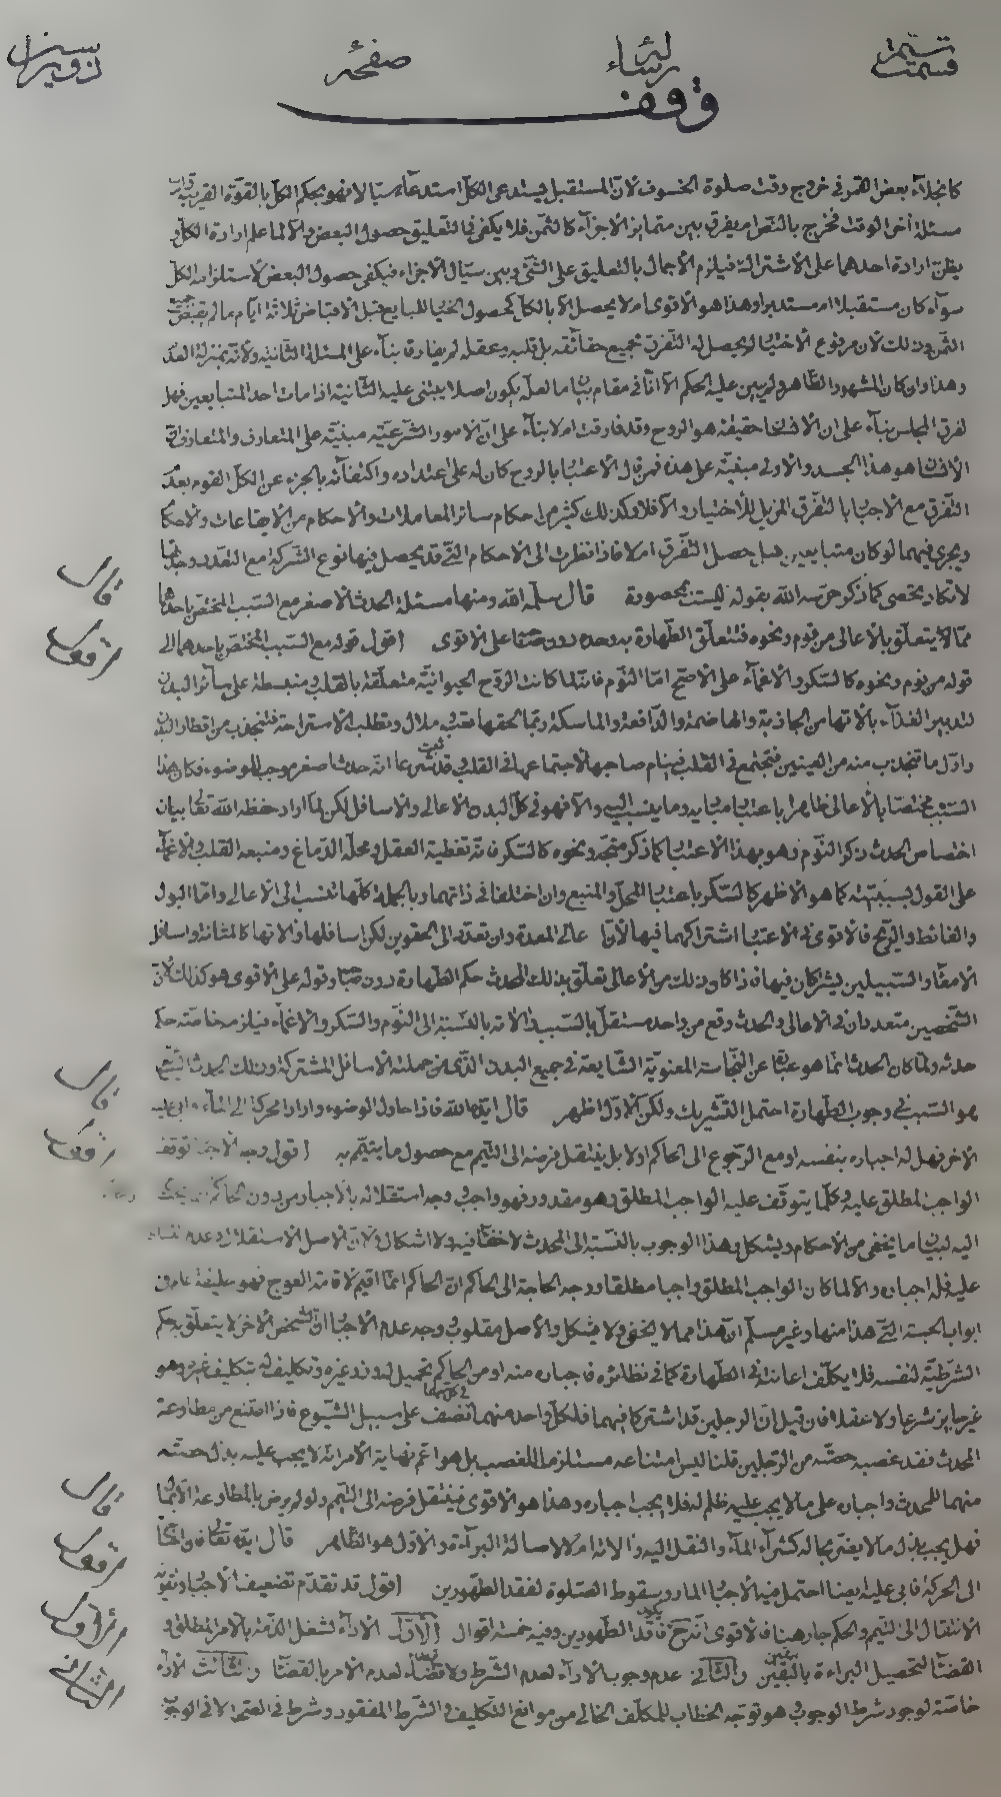 صفحه
وقف
كانجلاء بعض القمر في خروج وقت صلوة الخسوف لان المستقبل يستدعى الكل استدعاء سيالا فهو بحكم الكل بالقوة القريبة
مسئلة آخر الوقت فخرج بالنص ام يفرق بين متمايز الاجزاء كالثمن فلا يكفى في التعليق حصول البعض والا لما علم ارادة الكل او
يظن ارادة احدهما على الاشتراك فيلزم الاجمال بالتعليق على الشئ وبين سيال الاجزاء فيكفى حصول البعض لاستلزامه الكل
سواء كان مستقبلا ام مستدبرا وهذا هو الاقوى ام لا يحصل الا بالكل كحصول الخيار للبايع قبل الاقباض ثلاثة ايام ما لم يقبض
الثمن وذلك لان مرفوع الاختيار لم يحصل له التفرق بجميع حقائقه بل قلبه وعقله لم يفارقا بناء على المسئلة الثانية ولانه بمنزلة العدم
وهذا وان كان المشهور الظاهر ولم يبن عليه الحكم الا انا في مقام بيان ما لعله يكون اصلا يبتنى عليه الثانية اذا مات احد المتبايعين فهل
تفرق المجلس بناء على ان الانسان حقيقة هو الروح وقد فارقت ام لا بناء على ان الامور الشرعية مبنية على المتعارف والمتعارف ان
الانسان هو هذا الجسد والاولى مبنية على هذه فمن قال الاعتبار بالروح كان له على اعتداده واكتفائه بالجزء عن الكل القوم بعدم
التفرق مع الاجبار بالتفرق المزيل للاختيار والا فلا وكذلك كثير من احكام سائر المعاملات والاحكام من الايقاعات والاحكام
ويجرى فيهما لو كان متبايعين هل يحصل التفرق ام لا فاذا نظرت الى الاحكام التي قد يحصل فيها نوع الشركة مع التعدد وجدتها
لا تكاد تحصى كما ذكر حرسه الله بقوله ليست بمحصورة قال سلمه الله ومنها مسئلة الحدث الاصغر مع السبب المختص باحدهما
مما لا يتعلق بالاعالى من نوم ونحوه فتتعلق الطهارة به وحده دون صاحبه على الاقوى اقول قوله مع السبب المختص باحدهما الى
قوله من نوم ونحوه كالسكر والاغماء على الاصح اما النوم فانه لما كانت الروح الحيوانية متعلقة بالقلب منبسطة على سائر البدن
لتدبير الغذاء بالاتها من الجاذبة والهاضمة والدافعة والماسكة وربما لحقها تعب وملال وتطلب الاستراحة فتنجذب من اقطار البدن
واول ما تنجذب منه من العينين فتجتمع في القلب فينام صاحبها لاجتماعها في القلب وقد ثبت شرعا انه حدث اصغر موجب للوضوء فكان هذا
السبب مختصا بالاعالى ظاهرا باعتبار مباديه وما ينسب اليه والا فهو في كل البدن الاعالى والاسافل لكن لما اراد حفظه الله تعالى بيان
اختصاص الحدث ذكر النوم وهو بهذا الاعتبار كما ذكر متجه ونحوه كالسكر فانه تغطية العقل ومحله الدماغ ومنبعه القلب والاغماء
على القول بسببيته كما هو الاظهر كالسكر باعتبار المحل والمنبع وان اختلفا في ذاتهما وبالجملة كلها تنسب الى الاعالى واما البول
والغائط والريح فالاقوى في الاعتبار اشتراكهما فيها لان اعالى المعدة وان تعدد الى الحقوين لكن اسافلها والاتها كالمثانة واسافل
الامعاء والسبيلين يشتركان فيها فاذا كان ذلك من الاعالى تعلق بذلك المحدث حكم الطهارة دون صاحبه وقوله على الاقوى هو كذلك لان
الشخصين متعددان في الاعالى والحدث وقع من واحد مستقل بالسبب لانه بالنسبة الى النوم والسكر والاغماء فيلزمه خاصة حكم
حدثه ولما كان الحدث انما هو عبارة عن النجاسة المعنوية الشايعة في جميع البدن الذي من جملته الاسافل المشتركة وذلك الحدث الشايع
هو السبب في وجوب الطهارة احتمل التشريك ولكن الاول اظهر قال ايده الله فاذا حاول الوضوء واراد الحركة الى الماء وابى عليه
الآخر فهل له اجباره بنفسه او مع الرجوع الى الحاكم او لا بل ينتقل فرضه الى التيمم مع حصول ما يتيمم به اقول وجه الاجبار توقف
الواجب المطلق عليه وكلما يتوقف عليه الواجب المطلق وهو مقدور فهو واجب وجه استقلاله بالاجبار من دون الحاكم
اليه لبيان ما يخفى من الاحكام ويشكل وهذا الوجوب بالنسبة الى المحدث لا خفاء فيه ولا اشكال ولان الاصل الاستقلال وعدم
عليه فله اجباره والا لما كان الواجب المطلق واجبا مطلقا ووجه الحاجة الى الحاكم ان الحاكم انما اقيم لاقامة العوج فهو
ابواب الحسبة التي هذا منها وغير مسلم ان هذا مما لا يخفى ولا يشكل والاصل مقلوب ووجه عدم الاجبار ان الشخص الآخر لا يتعلق به حكم
الشرطية لنفسه فلا يكلف اعانة في الطهارة كما في نظائره فاجباره منه او من الحاكم تحميل له وزر غيره وتكليف له بتكليف غيره وهو
غير جايز شرعا ولا عقلا فان قيل ان الرجلين قد اشتركا فيهما فلكل واحد منهما نصف على سبيل الشيوع فاذا امتنع من مطاوعة
المحدث فقد غصبه حصته من الرجلين قلنا ليس امتناعه مستلزما للغصب بل هو اعم نهاية الامر انه لا يجب عليه بذل حصته
منهما للمحدث واجباره على ما لا يجب عليه ظلم له فلا يجب اجباره وهذا هو الاقوى فينتقل فرضه الى التيمم ولو لم يرض بالمطاوعة الا بمال
فهل يجب بذل ما لا يضر بحاله كشراء الماء والنقل اليه والاته ام لا لاصالة البراءة والاول هو الظاهر قال ايده تعالى فان احتاج
الى الحركة فابى عليه ايضا احتمل فيه الاجبار المار وسقوط الصلوة لفقد الطهورين اقول قد تقدم تضعيف الاجبار وتقوية
الانتقال الى التيمم والحكم جار هنا فالاقوى اندرج فاقد الطهورين وفيه خمسة اقوال الاول الاداء لشغل الذمة بالامر المطلق و
القضاء لتحصيل البراءة باليقين والثاني عدم وجوب الاداء لعدم الشرط ولا قضاء لعدم الامر بالقضاء والثالث الاداء
خاصة لوجود شرط الوجوب وهو توجه الخطاب للمكلف الخالى من موانع التكليف والشرط المفقود شرط في الصحة لا في الوجوب
قال
اقول
قال
اقول
قال
اقول
الثاني